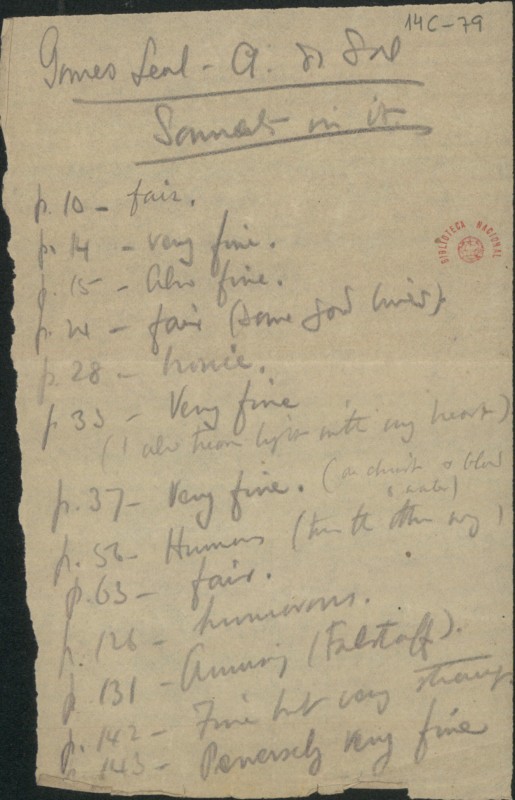 14C-79
Gomes Leal - A. do Sol
Sonnets in it.
p. 10 - fair.
p. 14 - very fine.
p. 15 - Also fine.
p. 24 - fair (some good lines).
BIBLIOTECA NACIONAL
p. 28 - Ironic.
p. 33 - Very fine
(I also with my heart)
p. 37 - Very fine. (on christ & blood
& water)
p. 56 - Humorous (
p. 63 - fair.
p. 126 - humorous.
p. 131 - Amusing (Falstaff).
p. 142 - Fine but very strange
p. 143 - Perversely very fine